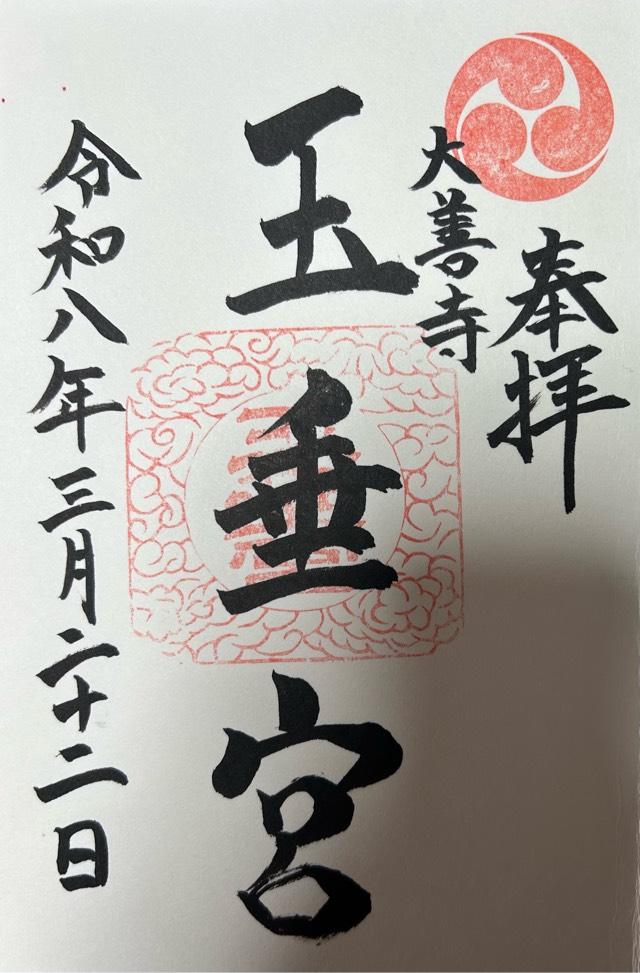 奉拝
大善寺
玉垂宮
令和八年三月二十二日